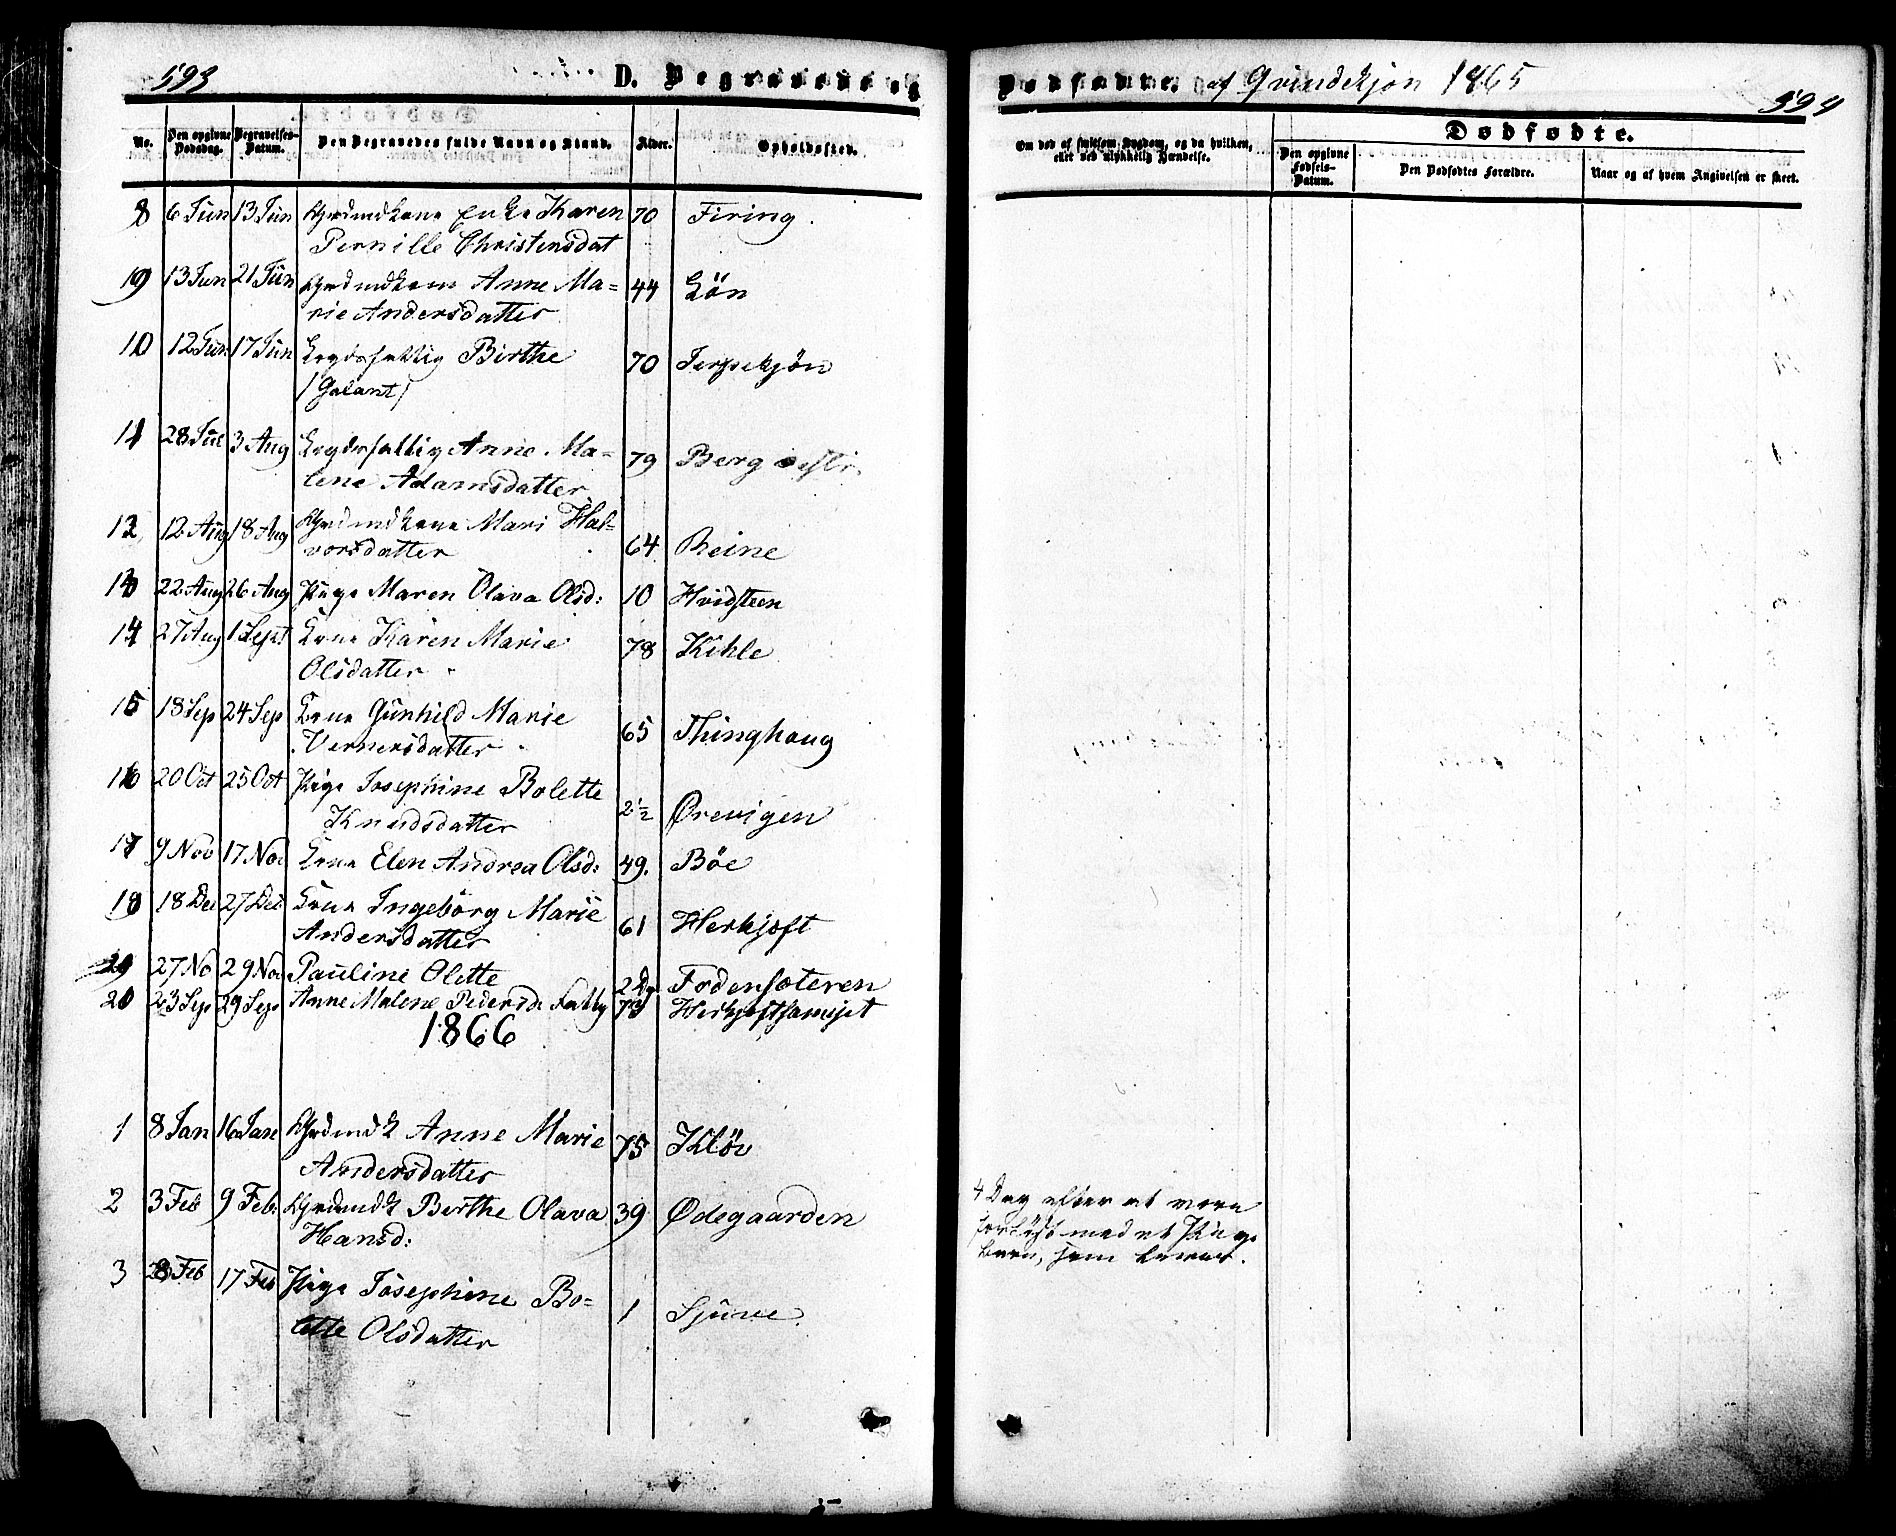 593
D. Begravede og
No.
Den opgivne Dødsdag.
Begravelses-Datum.
Den Begravedes fulde Navn og Stand.
Alder.
Opholdssted.
8 6 Jun 13 Jun Grdmdkone Enke Karen 70 Firing.
Pernille Christensdat
9 13 Jun 21 Jun Grdmdkone Anne Ma= 44 Løn
rie Andersdatter
10 12 Jun 17 Jun Legdsfattig Birthe 70 Jerpekjøn
/Galant/
11 28 Jul 3 Aug Legdsfattig Anne Ma= 79 Berg
lene Adamsdatter
12 12 Aug 18 Aug Grdmdkone Mari Hal= 64 Reine
vorsdatter
13 22 Aug 26 Aug Pige Maren Olava Olsd: 10 Hvidsteen
14 27 Aug 1 Sept Kone Karen Marie 78 Kihle
Olsdatter
15 18 Sep 24 Sep Kone Gunhild Marie 65 Thinghoug
Vernersdatter
16 20 Oct 25 Oct Pige Josephine Bolette 2½ Ørevigen
Knudsdatter
17 9 Nov 17 Nov Kone Elen Andrea Olsd: 49. Bøe
18 18 Dec 27 Dec Kone Ingeborg Marie 61 Herkjoft
Andersdatter
19 27 No 29 Nov Pauline Olette 2 Dg Fodensæteren
20 23 Sep 29 Sep Anne Malene Pedersd. Fattig 73
1866
1 8 Jan 16 Jan Grdmdk Anne Marie 75 Kløv
Andersdatter
2 3 Feb 9 Feb. Grdmdk Berthe Olava 39 Ødegaarden
Hansd:
3 8 Feb 17 Feb Pige Josephine Bo= 1 Sjuve.
lette Olsdatter
Dødfødte. af Qvindekjøn 1865
594
Om død af smitsom Sygdom, og da hvilken, eller ved ulykkelig Hændelse.
Dødfødte.
Den opgivne Fødsels-Datum.
Den Dødfødtes Forældre.
Naar og af hvem Angivelsen er skeet.
4 Dag efter at være
forløst med et Pige
barn, som lever.